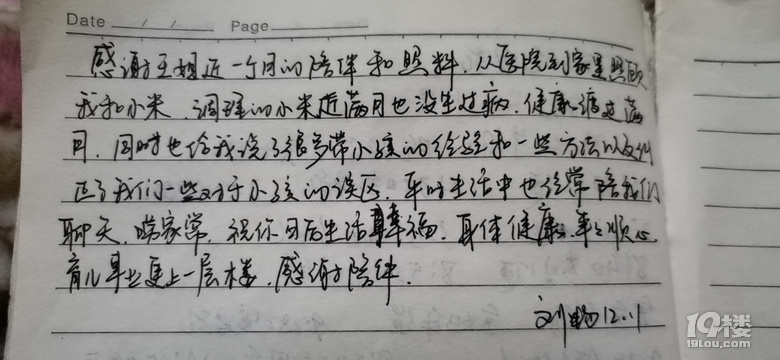 Date / / Page
感谢王姐近一个月的陪伴和照料.从医院到家里照顾
我和小米.调理的小米近满月也没生过病.健康度过满
月.同时也给我说了很多带小孩的经验和一些方法以及纠
正了我们一些对于小孩的误区.平时生活中也经常陪我们
聊天.唠家常.祝你日后生活幸福.身体健康.事事顺心
育儿事业更上一层楼.感谢陪伴.
刘畅12.11
19楼
19lou.com